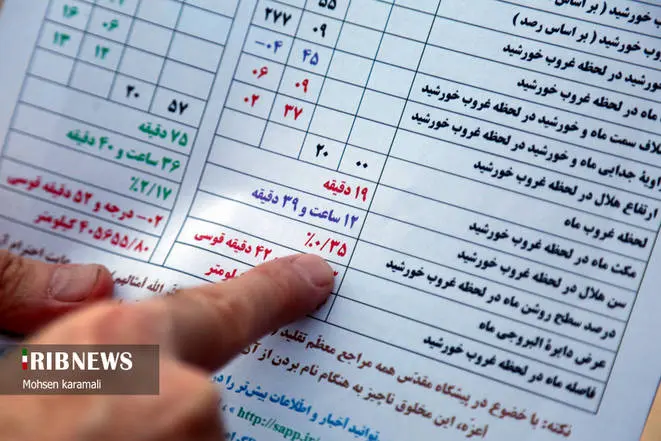 خورشید ( بر اساس
خورشید ( بر اساس رصد ) ۵۵
در لحظه غروب خورشید ۰۹ ۲۷۷
ماه در لحظه غروب خورشید ۴۵ -۰۴
سمت ماه و خورشید در لحظه غروب خورشید ۰۹ ۰۶
جدایی ماه و خورشید در لحظه غروب خورشید ۳۷ ۰۲
ارتفاع هلال در لحظه غروب خورشید
لحظه غروب ماه ۰۰ ۲۰ ۵۷ ۲۰
مکث ماه در لحظه غروب خورشید ۱۹ دقیقه ۷۵ دقیقه
سن هلال در لحظه غروب خورشید ۱۲ ساعت و ۳۹ دقیقه ۳۶ ساعت و ۴۰ دقیقه
درصد سطح روشن ماه در لحظه غروب خورشید ٪۰/۳۵ ٪۲/۱۷
عرض دایرة البروجی ماه ۴۲ دقیقه قوسی ۰۲- درجه و ۵۲ دقیقه قوسی
فاصله ماه در لحظه غروب خورشید کیلومتر ۴۰۵۶۵۵/۸۰ کیلومتر
نکته: با خضوع در پیشگاه مقدّس همه مراجع معظّم تقلید
اعزه، این مخلوق ناچیز به هنگام نام بردن از آن
توانید اخبار و اطلاعات بیش‌تر را در
http://sapp.i
IRIBNEWS
Mohsen karamali